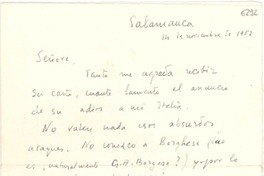 6296
Salamanca
14 de noviembre de 1952
Señore,
Tanto me agrada recibir
su carta, cuanto lamento el anuncio
de su adiós a mi Italia.
No valen nada esos absurdos
ataques. No conozco a Borghese (no
es, naturalmente G. A. Borgese?) y por lo